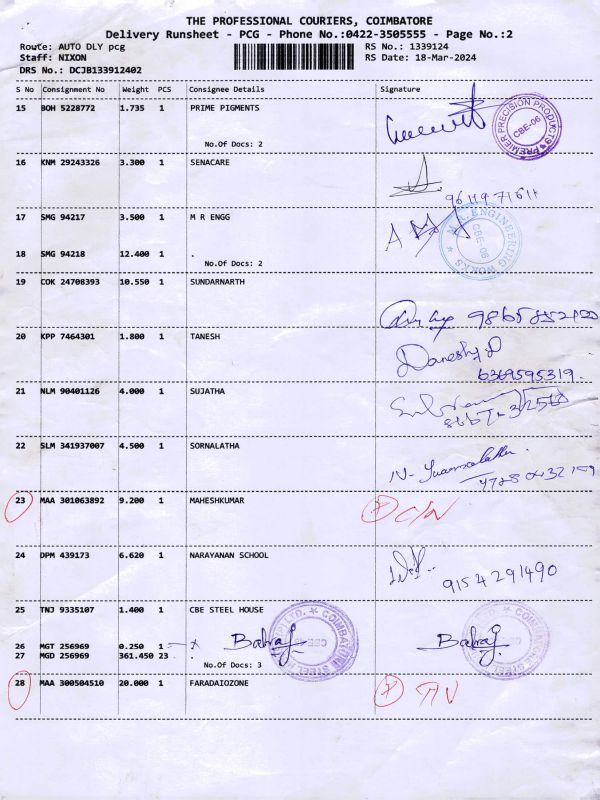 THE PROFESSIONAL COURIERS, COIMBATORE
Delivery Runsheet - PCG - Phone No.:0422-3505555 - Page No.:2
Route: AUTO DLY pcg RS No.: 1339124
Staff: NIXON RS Date: 18-Mar-2024
DRS No.: DCJB133912402
S No Consignment No Weight PCS Consignee Details Signature
15 BOH 5228772 1.735 1 PRIME PIGMENTS
PREMIER PRECISION PRODUCTS CBE-06
No.Of Docs: 2
16 KNM 29243326 3.300 1 SENACARE
17 SMG 94217 3.500 1 M R ENGG
M.R. ENGINEERING WORKS CBE-06
18 SMG 94218 12.400 1 .
No.Of Docs: 2
19 COK 24708393 10.550 1 SUNDARNARTH
20 KPP 7464301 1.800 1 TANESH
Danesh.D
6369595319.
21 NLM 90401126 4.000 1 SUJATHA
22 SLM 341937007 4.500 1 SORNALATHA
23 MAA 301063892 9.200 1 MAHESHKUMAR C/N
24 DPM 439173 6.620 1 NARAYANAN SCHOOL
9154291490
25 TNJ 9335107 1.400 1 CBE STEEL HOUSE
26 MGT 256969 0.250 1 Babraj Babraj
27 MGD 256969 361.450 23 .
No.Of Docs: 3
28 MAA 300504510 20.000 1 FARADAIOZONE